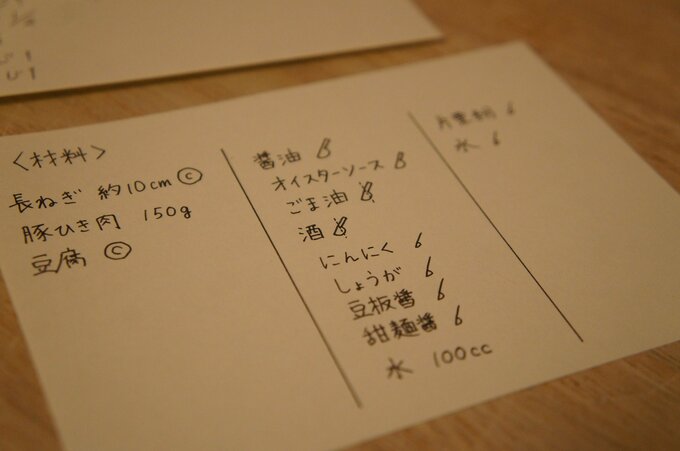 <材料>
長ねぎ 約10cm ©
豚ひき肉 150g
豆腐 ©
醤油
オイスターソース
ごま油
酒
にんにく
しょうが
豆板醤
甜麺醤
水 100cc
片栗粉
水